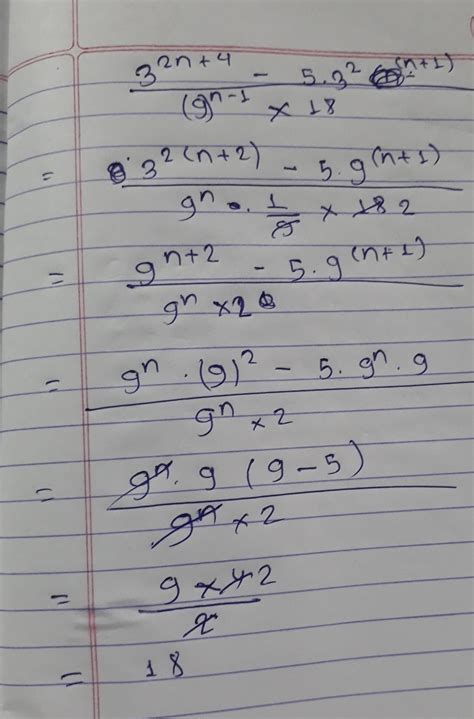 3^{2n+4} - 5.3^{2(n+1)}
(9^{n-1} × 18
= 3^{2(n+2)} - 5.9^{(n+1)}
9^n . 1/9 × 18 2
= 9^{n+2} - 5.9^{(n+1)}
9^n × 2
= 9^n . (9)^2 - 5.9^n . 9
9^n × 2
= 9^n . 9 (9 - 5)
9^n × 2
= 9 × 4 2
2
= 18